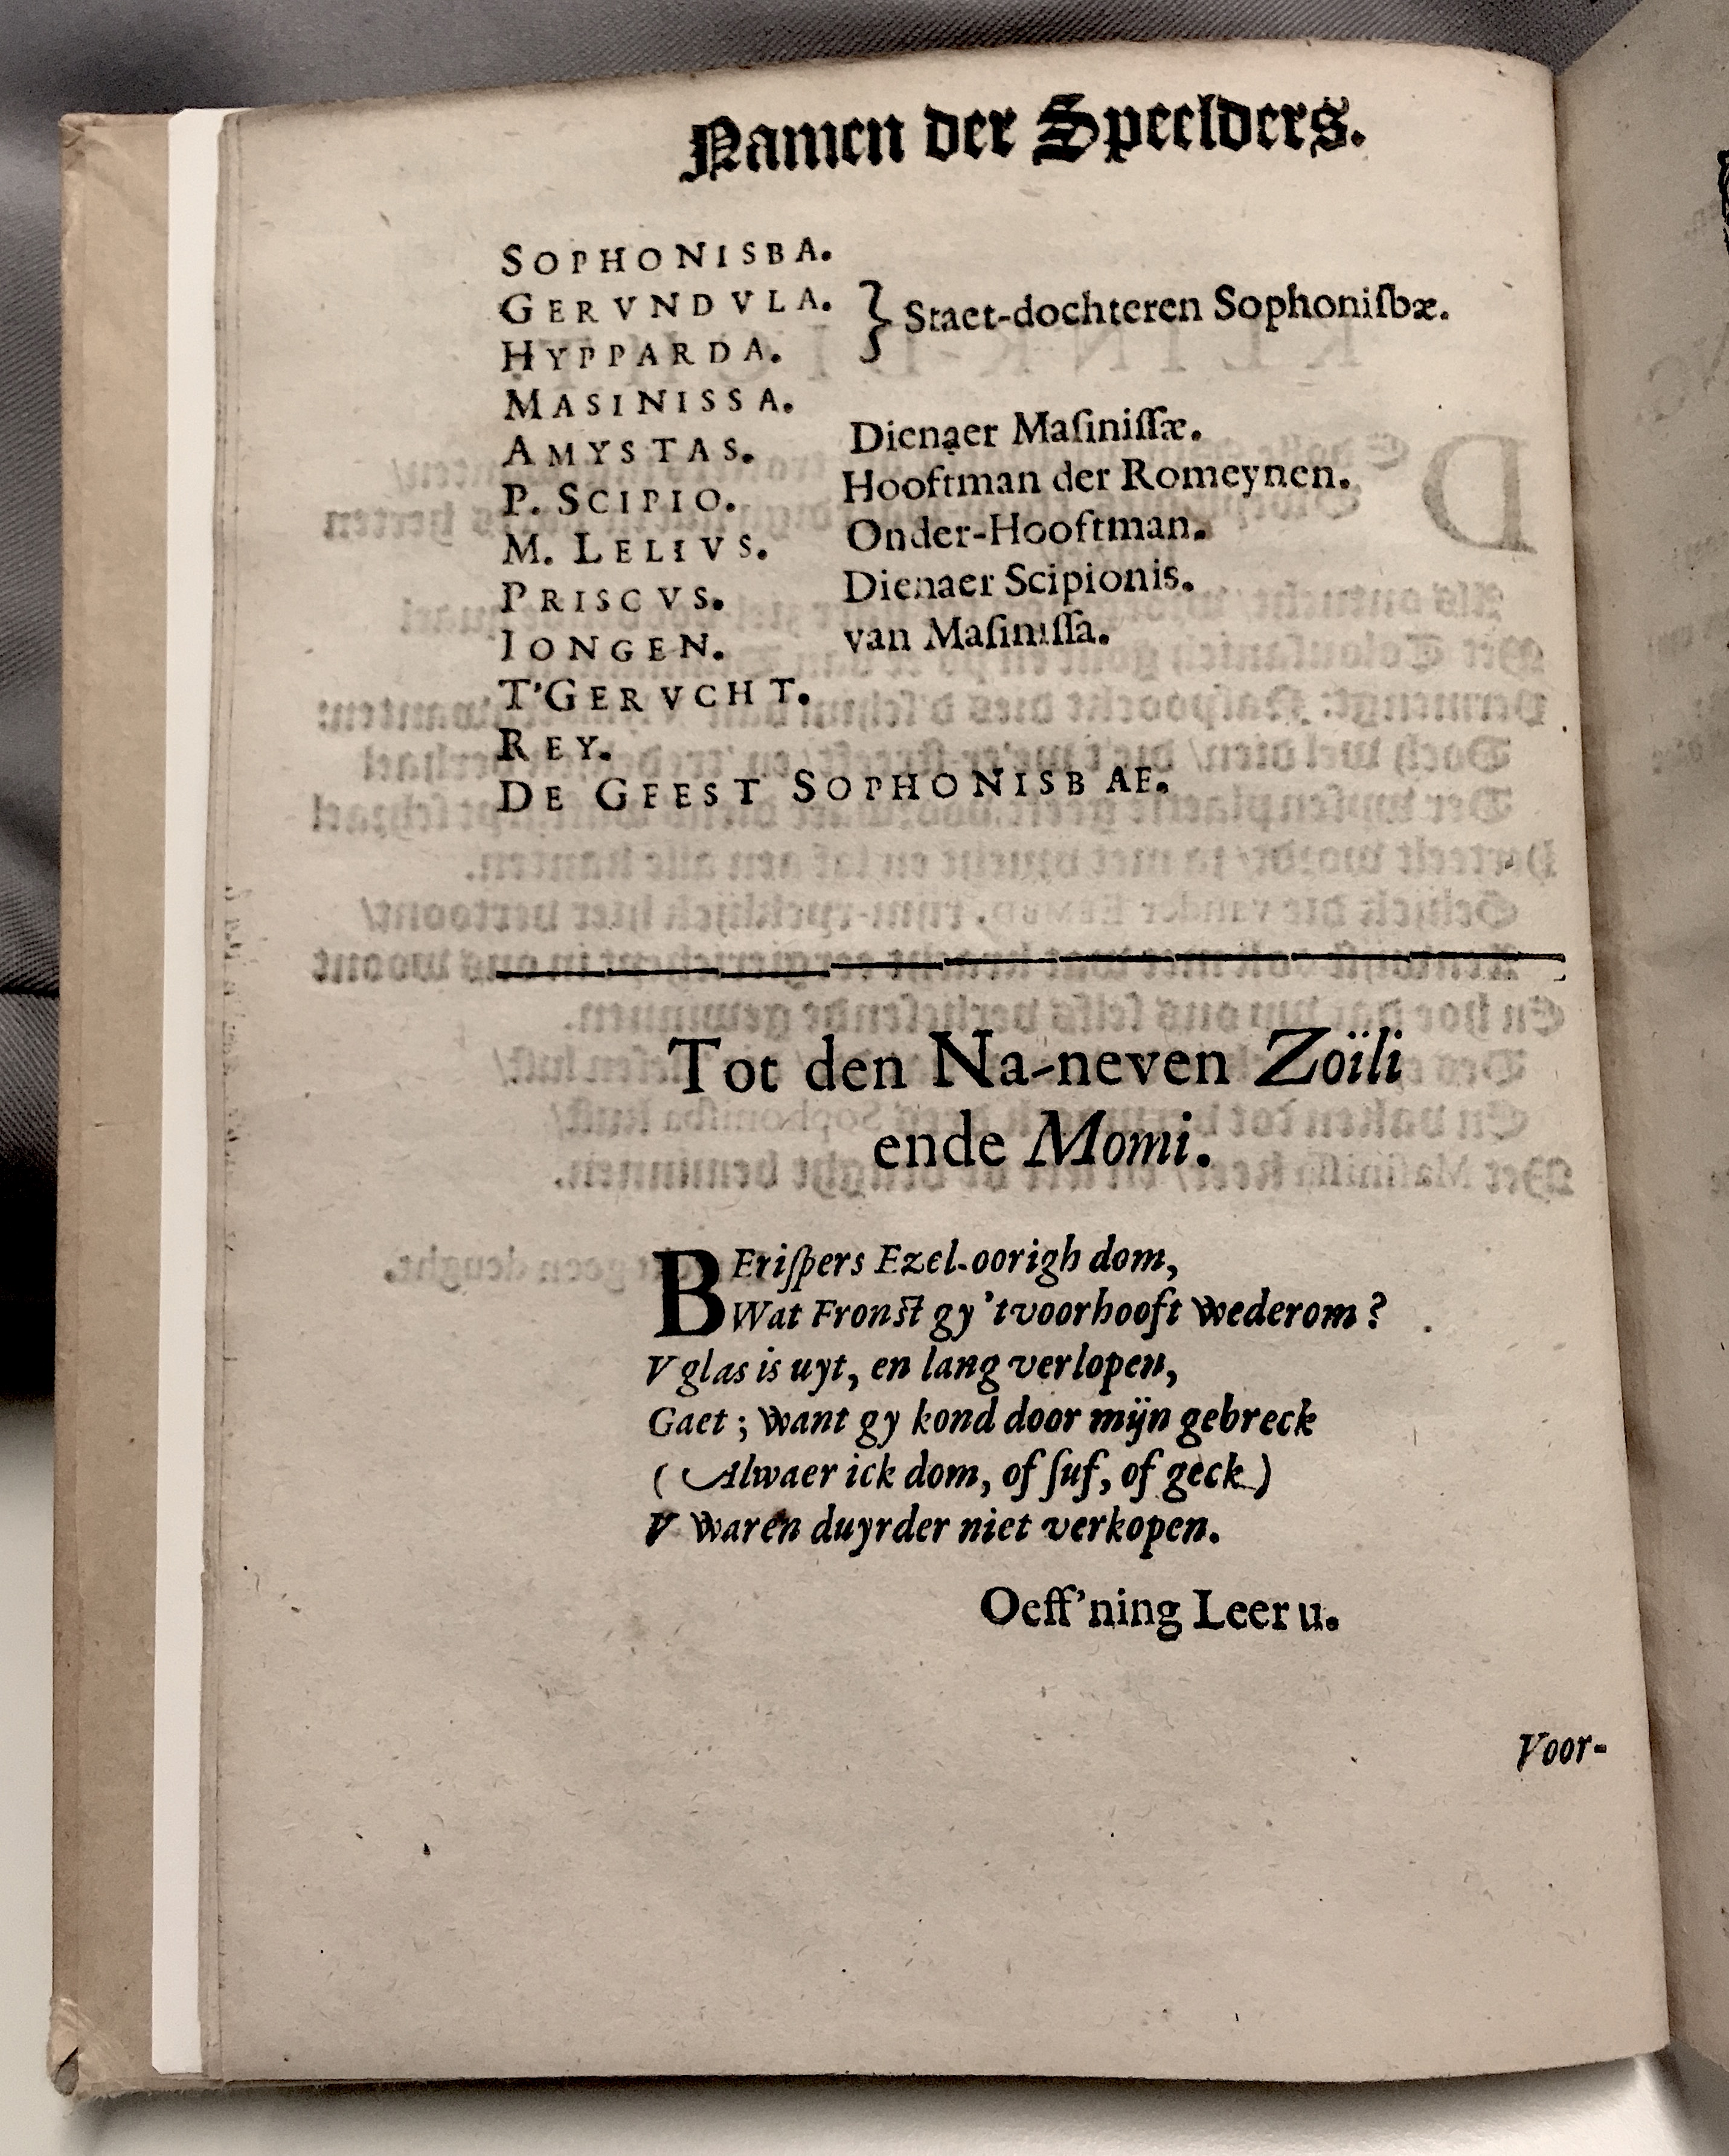 Namen der Speelders.
SOPHONISBA.
GERVNDVLA. } Staet-dochteren Sophoniſbæ.
HYPPARDA.
MASINISSA.
AMYSTAS. Dienaer Maſiniſſæ.
P. SCIPIO. Hooftman der Romeynen.
M. LELIVS. Onder-Hooftman.
PRISCVS. Dienaer Scipionis.
IONGEN. van Maſiniſſa.
T'GERVCHT.
REY.
DE GEEST SOPHONISBAE.
Tot den Na-neven Zoïli
ende Momi.
BEriſpers Ezel-oorigh dom,
Wat Fronſt gy 't voorhooft wederom?
V glas is uyt, en lang verlopen,
Gaet; want gy kond door mijn gebreck
(Alwaer ick dom, of ſuf, of geck)
V waren duyrder niet verkopen.
Oeff'ning Leer u.
Voor-